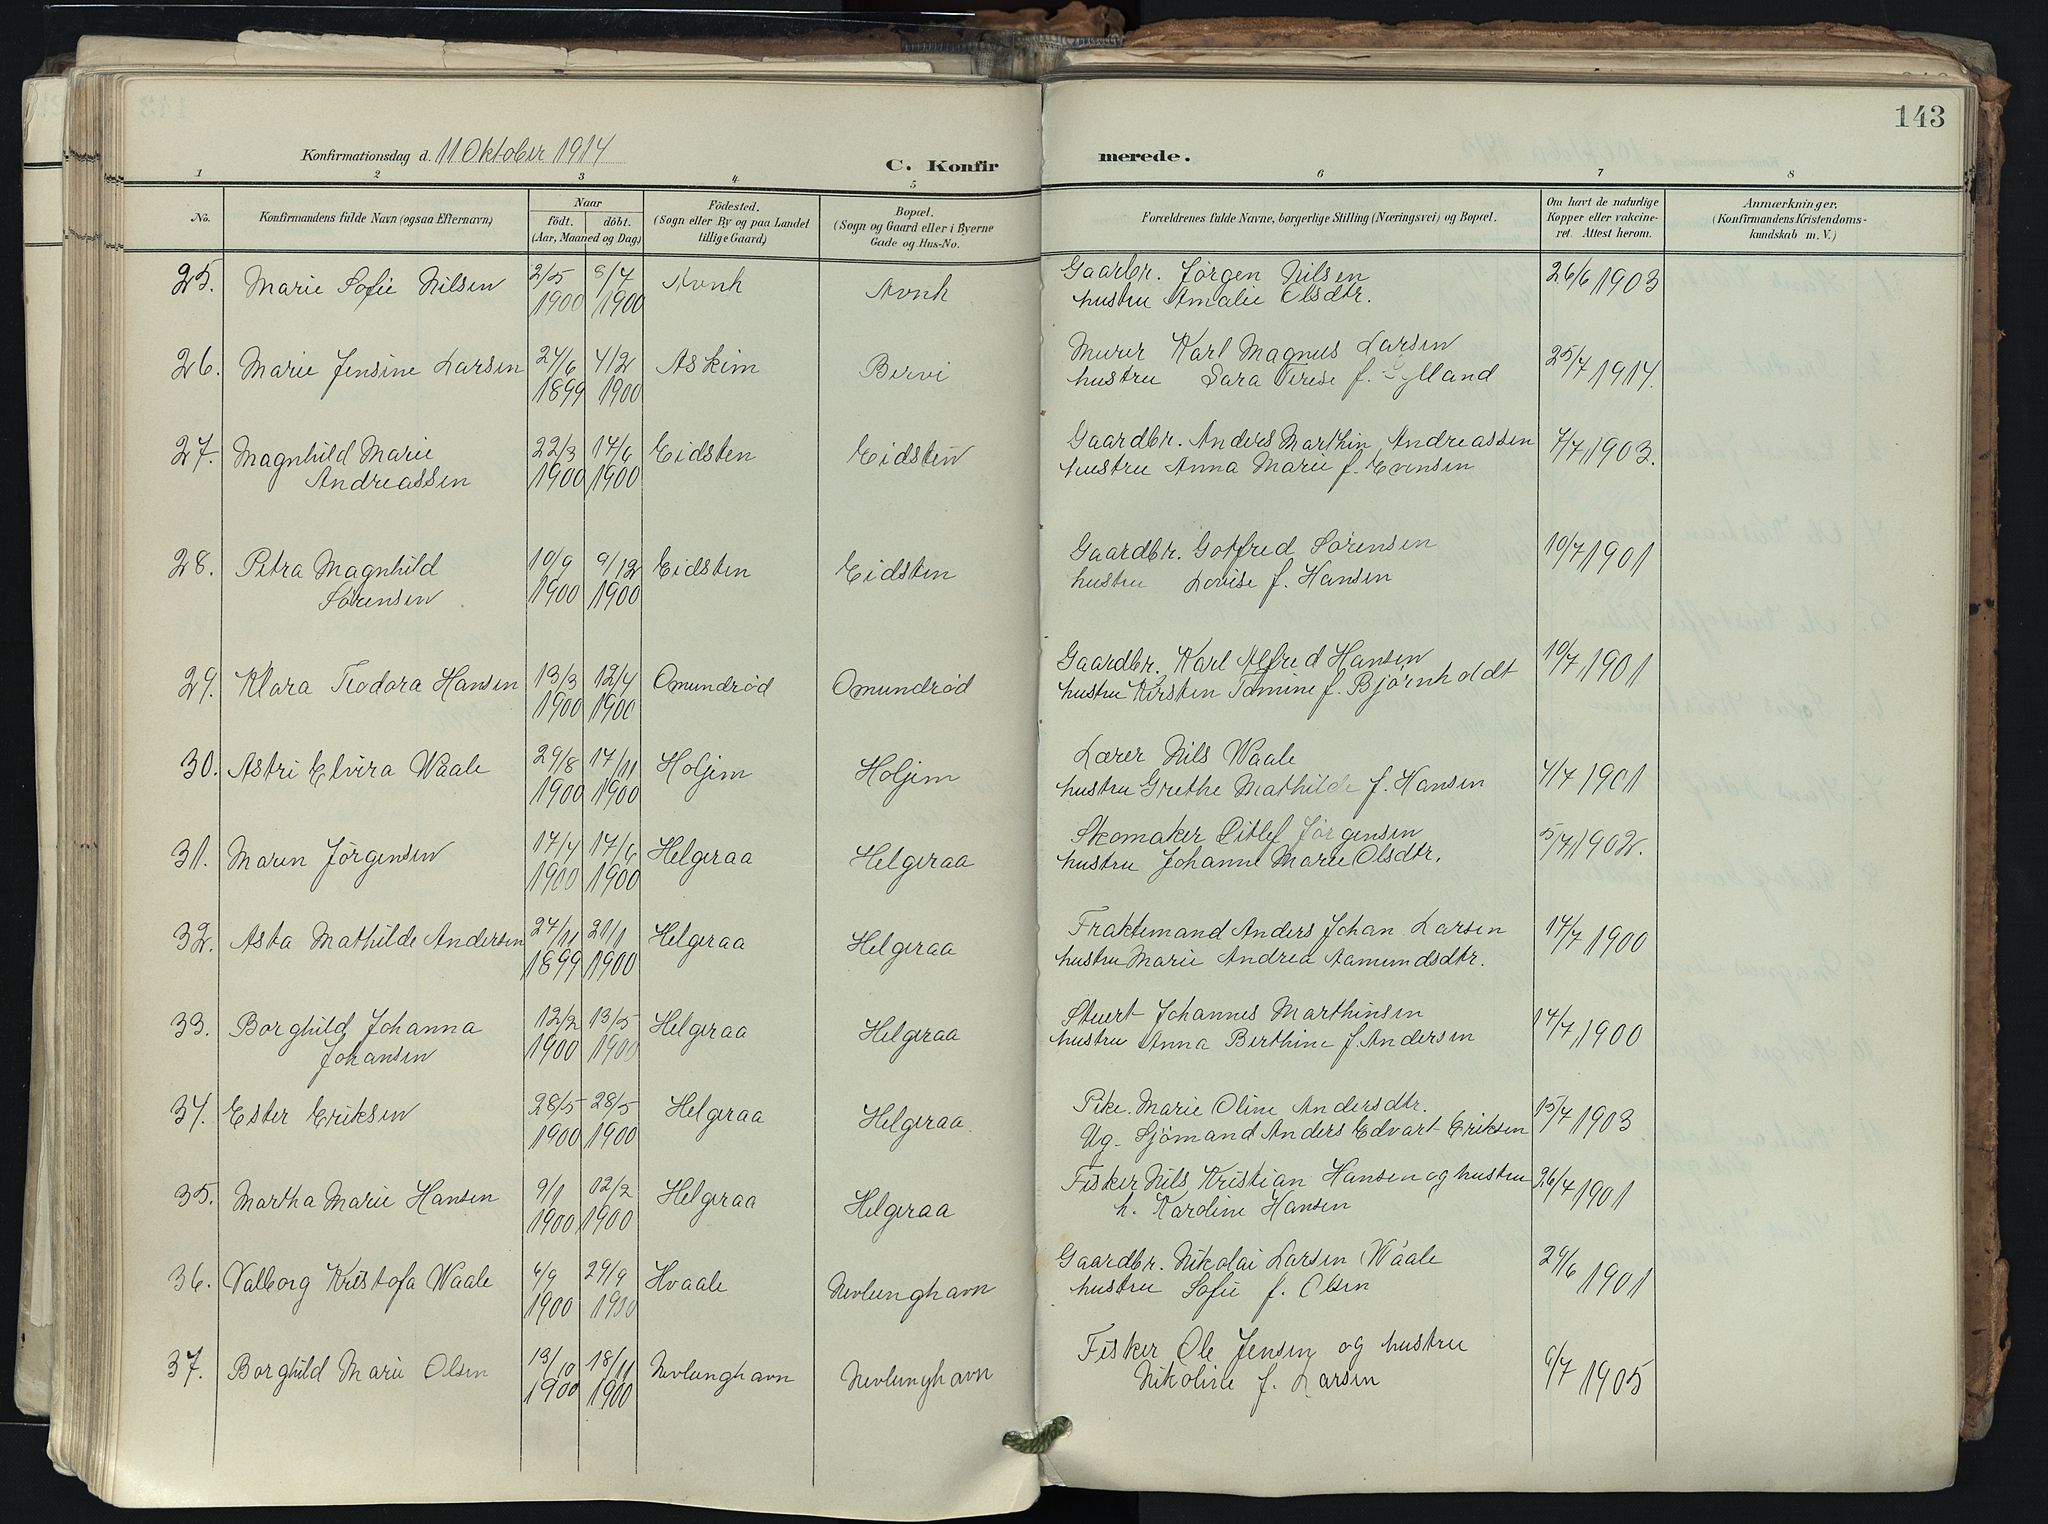 143
Konfirmationsdag d. 11 Oktober 1914
C. Konfirmerede.
1 2 3 4 5 6 7 8
No.
Konfirmandens fulde Navn (ogsaa Efternavn)
Naar
født. døbt.
(Aar, Maaned og Dag)
Födested.
(Sogn eller By og paa Landet
tillige Gaard)
Bopæl.
(Sogn og Gaard eller i Byerne
Gade og Hus-No.
Forældrenes fulde Navne, borgerlige Stilling (Næringsvei) og Bopæl.
Om havt de naturlige
Kopper eller vakcine-
ret. Attest herom.
Anmærkninger,
(Konfirmandens Kristendoms-
kundskab m. V.)
25. Marie Sofie Nilsen 2/5 1900 1900 Avnh Avnh
Gaarbr. Jørgen Nilsen
hustru Amalie Olsdtr.
26/6 1903
26. Marie Jensine Larsen 24/6 1899 4/2 1900 Askim Bervi
Murer Karl Magnus Larsen
hustru Sara Terese f. Gylland
25/7 1914.
27. Magnhild Marie
Andreassen
22/3 1900 17/6 1900 Eidsten Eidsten
Gaardbr. Anders Marthin Andreassen
hustru Anna Marie f. Evensen
7/7 1903.
28. Petra Magnhild
Sørensen
10/9 1900 9/12 1900 Eidsten Eidsten
Gaardbr. Gotfred Sørensen
hustru Lovise f. Hansen
10/7 1901
29. Klara Teodora Hansen 13/3 1900 12/4 1900 Omundrød Omundrød
Gaardbr. Karl Alfred Hansen
hustru Kirsten Tomine f. Bjørnholdt
10/7 1901
30. Astri Elvira Waale 29/8 1900 17/11 1900 Holjem Holjem
Lærer Nils Waale
hustru Grethe Mathilde f. Hansen
4/7 1901
31. Maren Jørgensen 17/4 1900 17/6 1900 Helgeraa Helgeraa
Skomaker Ditlef Jørgensen
hustru Johanne Marie Olsdtr.
5/7 1902.
32. Asta Mathilde Andersen 24/11 1899 21/1 1900 Helgeraa Helgeraa
Fraktemand Anders Johan Larsen
hustru Marie Andrea Aamundsdtr.
17/7 1900
33. Borghild Johanna
Johansen
12/2 1900 13/5 1900 Helgeraa Helgeraa
Stuert Johannes Marthinsen
hustru Anna Berthine f. Andersen
17/7 1900
34. Ester Eriksen 28/5 1900 28/5 1900 Helgeraa Helgeraa.
Pike. Marie Oline Andersdtr.
Ug. Sjømand Anders Edvart Eriksen
15/7 1903
35. Martha Marie Hansen 9/1 1900 12/2 1900 Helgeraa Helgeraa
Fisker Nils Kristian Hansen og hustru
h. Karoline Hansen
26/7 1901
36. Valborg Kristofa Waale 6/9 1900 29/9 1900 Hvaale Nevlunghavn
Gaardbr. Nikolai Larsen Waale
hustru Sofie f. Olsen
29/6 1901
37. Borghild Marie Olsen 13/10 1900 18/11 1900 Nevlunghavn Nevlunghavn
Fisker Ole Jensen og hustru
Nikoline f. Larsen
6/7 1905